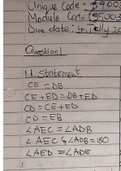 Unique Code - 
Module Code: 
Due date: 4 July 20
Question 1
1.1 Statement
CE = DB
CE + ED = DB + ED
CD = CE + ED
CD = EB
∠AEC = ∠ADB
∠AEC + ∠ADB = 180
∠AED = ∠ADE